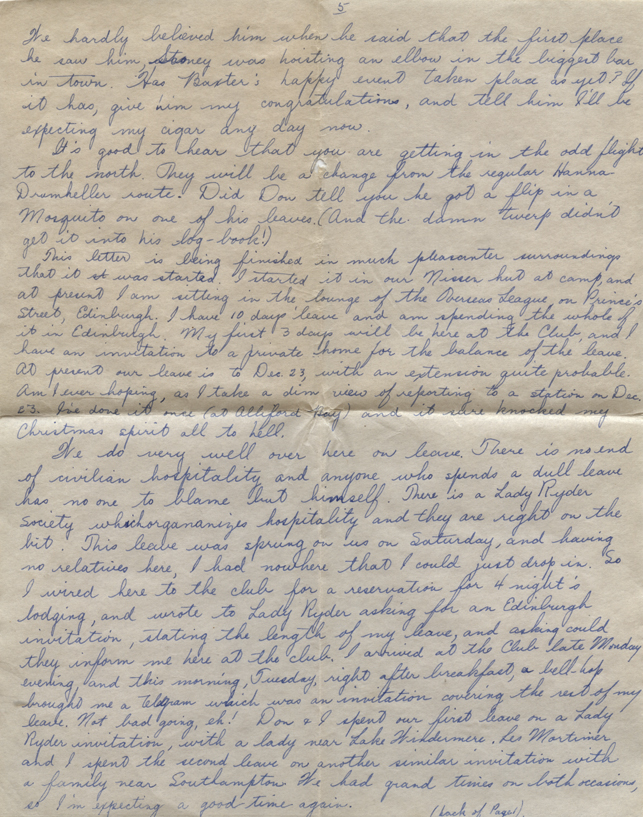 5
We hardly believed him when he said that the first place
he saw him, Stoney was hoisting an elbow in the biggest bar
in town. Has Baxter's happy event taken place as yet? If
it has, give him my congratulations, and tell him I'll be
expecting my cigar any day now.
It's good to hear that you are getting in the odd flight
to the north. They will be a change from the regular Hanna-
Drumheller route. Did Don tell you he got a flip in a
Mosquito on one of his leaves. (And the damn twerp didn't
get it into his log-book!)
This letter is being finished in much pleasanter surroundings
that it was started. I started it in our Nissen hut at camp, and
at present I am sitting in the lounge of the Overseas League, on Prince's
Street, Edinburgh. I have 10 days leave and am spending the whole of
it in Edinburgh. My first 3 days will be here at the Club, and I
have an invitation to a private home for the balance of the leave.
At present our leave is to Dec. 23, with an extension quite probable.
Am I ever hoping, as I take a dim view of reporting to a station on Dec.
23. I've done it once (at Alliford Bay) and it sure knocked my
Christmas spirit all to hell.
We do very well over here on leave. There is no end
of civilian hospitality and anyone who spends a dull leave
has no one to blame but himself. There is a Lady Ryder
Society which organanizes hospitality and they are right on the
bit. This leave was sprung on us on Saturday, and having
no relatives here, I had nowhere that I could just drop in. So
I wired here to the club for a reservation for 4 night's
lodging, and wrote to Lady Ryder asking for an Edinburgh
invitation, stating the length of my leave, and asking could
they inform me here at the club. I arrived at the Club late Monday
evening and this morning, Tuesday, right after breakfast, a bell-hop
brought me a telegram which was an invitation covering the rest of my
leave. Not bad going, eh! Don & I spent our first leave on a Lady
Ryder invitation, with a lady near Lake Windermere. Les Mortimer
and I spent the second leave on another similar invitation with
a family near Southampton. We had grand times on both occasions,
so I'm expecting a good time again.
(back of Page 1).